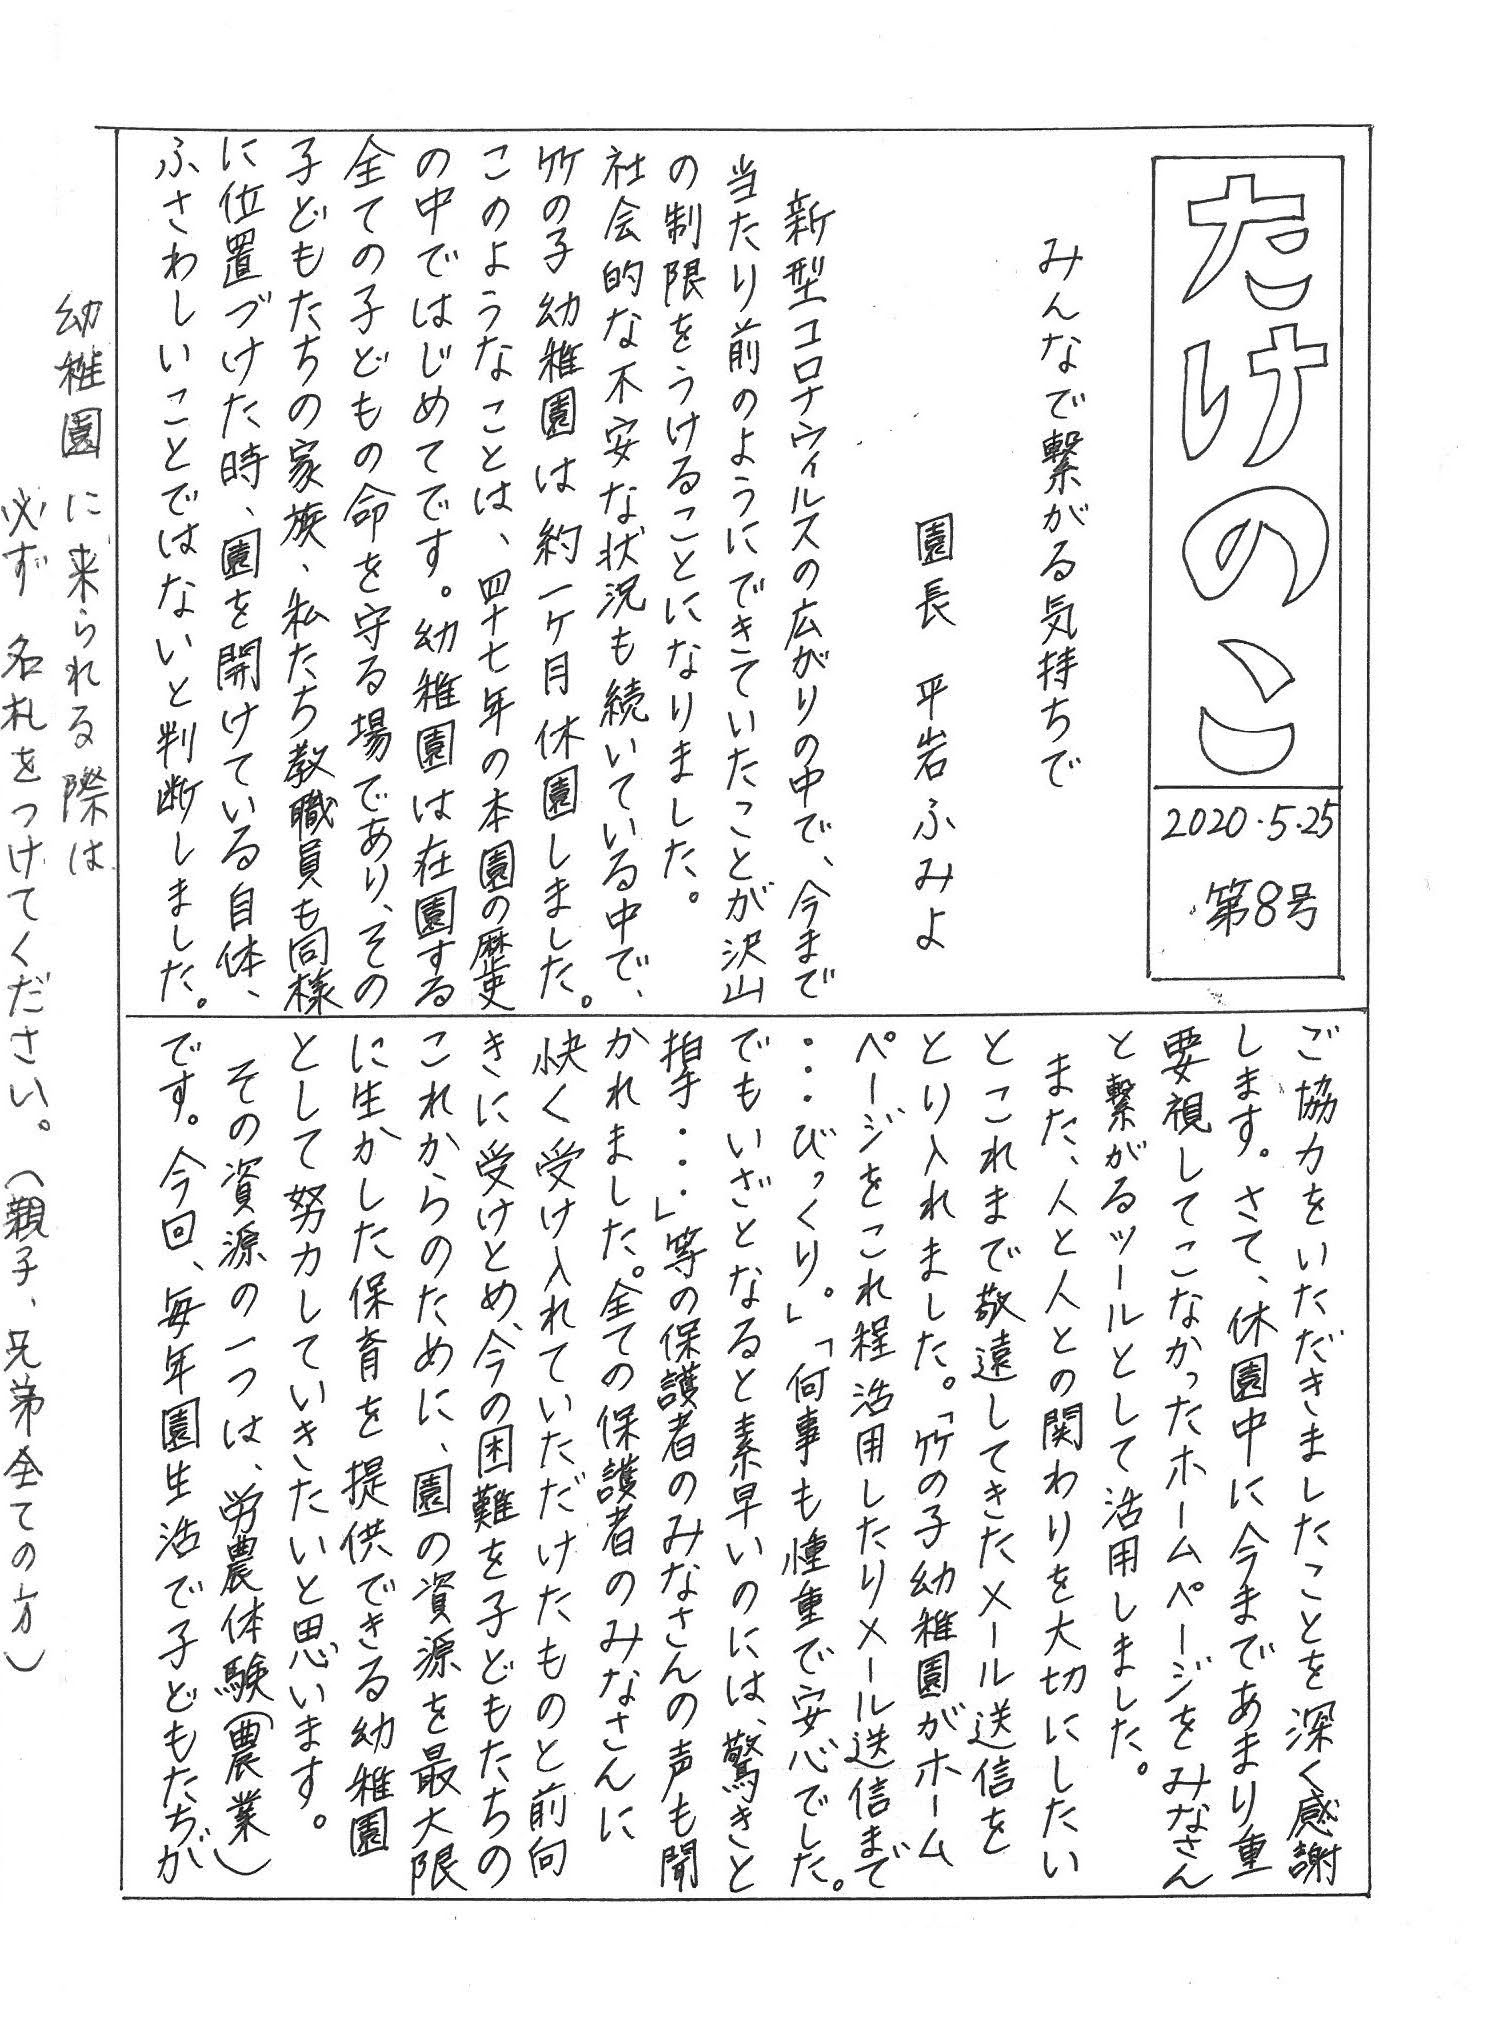 たけのこ
2020.5.25
第8号
みんなで繋がる気持ちで
園長 平岩ふみよ
新型コロナウィルスの広がりの中で、今まで
当たり前のようにできていたことが沢山
の制限をうけることになりました。
社会的な不安な状況も続いている中で、
竹の子幼稚園は約一ケ月休園しました。
このようなことは、四十七年の本園の歴史
の中ではじめてです。幼稚園は在園する
全ての子どもの命を守る場であり、その
子どもたちの家族、私たち教職員も同様
に位置づけた時、園を開けている自体、
ふさわしいことではないと判断しました。
ご協力をいただきましたことを深く感謝
します。さて、休園中に今まであまり重
要視してこなかったホームページをみなさん
と繋がるツールとして活用しました。
また、人と人との関わりを大切にしたい
とこれまで敬遠してきたメール送信を
とり入れました。「竹の子幼稚園がホーム
ページをこれ程活用したりメール送信まで
・・・びっくり。」「何事も慎重で安心でした。
でもいざとなると素早いのには、驚きと
拍手・・・」等の保護者のみなさんの声も聞
かれました。全ての保護者のみなさんに
快く受け入れていただけたものと前向
きに受けとめ、今の困難を子どもたちの
これからのために、園の資源を最大限
に生かした保育を提供できる幼稚園
として努力していきたいと思います。
その資源の一つは、労農体験(農業)
です。今回、毎年園生活で子どもたちが
幼稚園に来られる際は
必ず 名札をつけてください。(親子、兄弟全ての方)